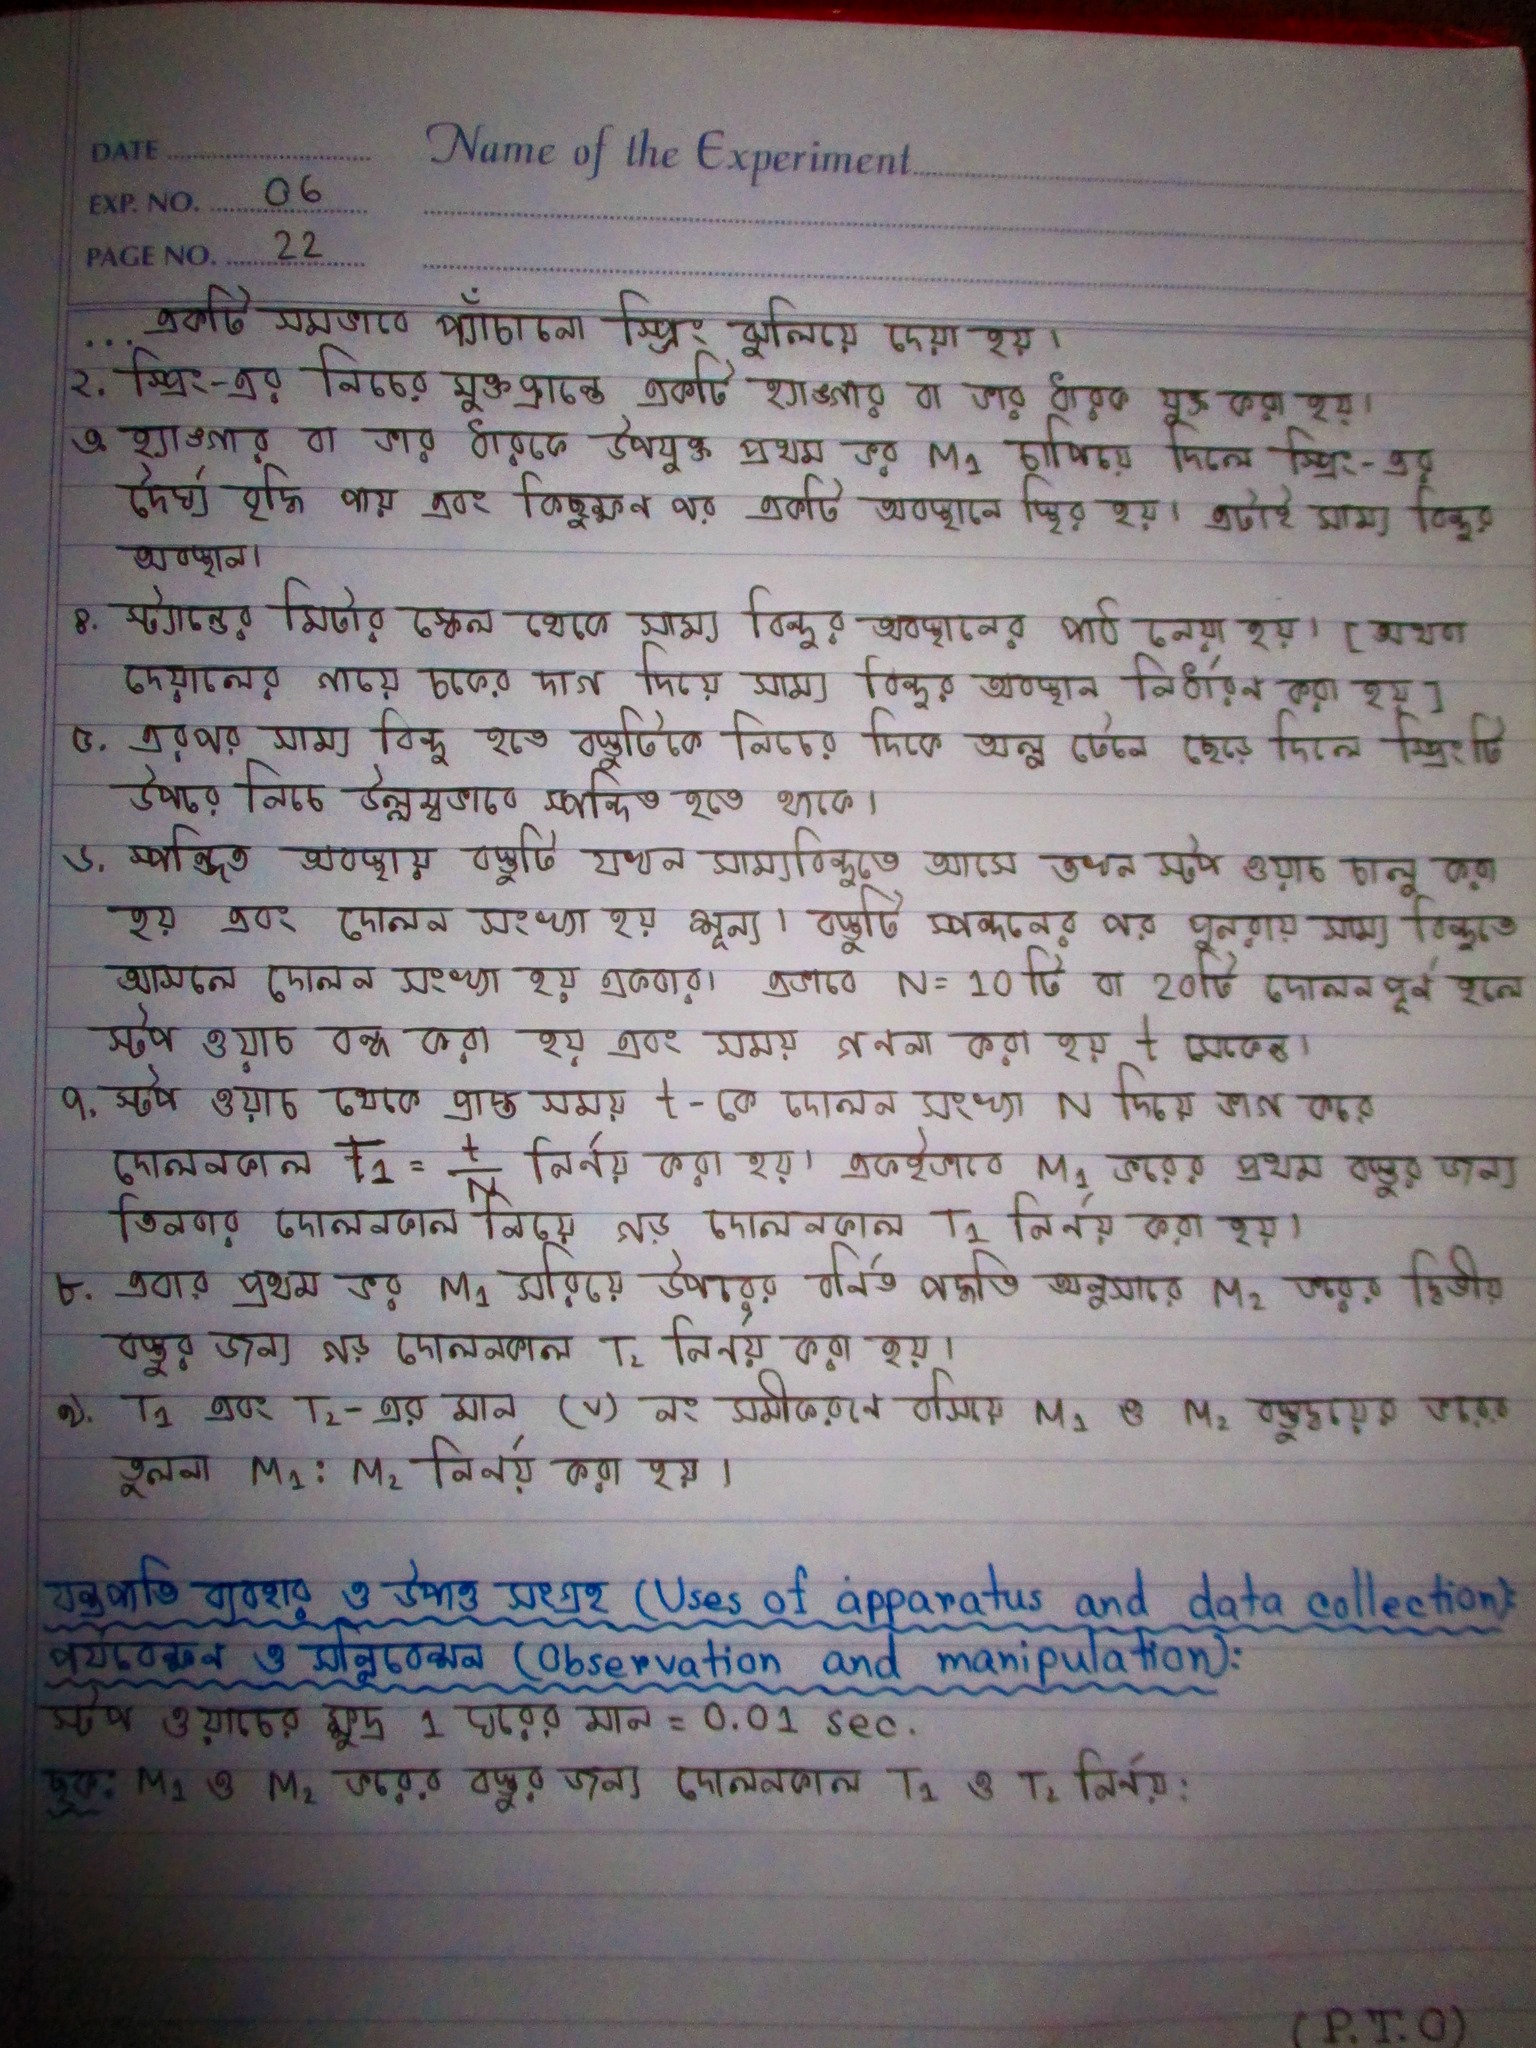 DATE
Name of the Experiment
EXP. NO. 06
PAGE NO. 22
... একটি সমভাবে প্যাঁচানো স্প্রিং ঝুলিয়ে দেয়া হয়।
২. স্প্রিং-এর নিচের মুক্তপ্রান্তে একটি হ্যাঙ্গার বা ভার ধারক যুক্ত করা হয়।
৩ হ্যাঙ্গার বা ভার ধারকে উপযুক্ত প্রথম ভর M₁ চাপিয়ে দিলে স্প্রিং-এর
দৈর্ঘ্য বৃদ্ধি পায় এবং কিছুক্ষন পর একটি অবস্থানে স্থির হয়। এটাই সাম্য বিন্দুর
অবস্থান।
৪. স্ট্যান্ডের মিটার স্কেল থেকে সাম্য বিন্দুর অবস্থানের পাঠ নেয়া হয়। [অথবা
দেয়ালের গায়ে চকের দাগ দিয়ে সাম্য বিন্দুর অবস্থান নির্ধারন করা হয়]
৫. এরপর সাম্য বিন্দু হতে বস্তুটিকে নিচের দিকে অল্প টেনে ছেড়ে দিলে স্প্রিংটি
উপরে নিচে উল্লম্বভাবে স্পন্দিত হতে থাকে।
৬. স্পন্দিত অবস্থায় বস্তুটি যখন সাম্যবিন্দুতে আসে তখন স্টপ ওয়াচ চালু করা
হয় এবং দোলন সংখ্যা হয় শূন্য। বস্তুটি স্পন্দনের পর পুনরায় সাম্য বিন্দুতে
আসলে দোলন সংখ্যা হয় একবার। এভাবে N= 10টি বা 20টি দোলন পূর্ন হলে
স্টপ ওয়াচ বন্ধ করা হয় এবং সময় গননা করা হয় t সেকেন্ড।
৭. স্টপ ওয়াচ থেকে প্রাপ্ত সময় t-কে দোলন সংখ্যা N দিয়ে ভাগ করে
দোলনকাল T₁ = t/N নির্নয় করা হয়। একইভাবে M₁ ভরের প্রথম বস্তুর জন্য
তিনবার দোলনকাল নিয়ে গড় দোলনকাল T₁ নির্নয় করা হয়।
৮. এবার প্রথম ভর M₁ সরিয়ে উপরের বর্নিত পদ্ধতি অনুসারে M₂ ভরের দ্বিতীয়
বস্তুর জন্য গড় দোলনকাল T₂ নির্নয় করা হয়।
৯. T₁ এবং T₂-এর মান (v) নং সমীকরনে বসিয়ে M₁ ও M₂ বস্তুদ্বয়ের ভরের
তুলনা M₁ : M₂ নির্নয় করা হয়।
যন্ত্রপাতি ব্যবহার ও উপাত্ত সংগ্রহ (Uses of apparatus and data collection):
পর্যবেক্ষন ও সন্নিবেশন (Observation and manipulation):
স্টপ ওয়াচের ক্ষুদ্র 1 ঘরের মান = 0.01 sec.
ছক: M₁ ও M₂ ভরের বস্তুর জন্য দোলনকাল T₁ ও T₂ নির্নয়:
(P.T.O)